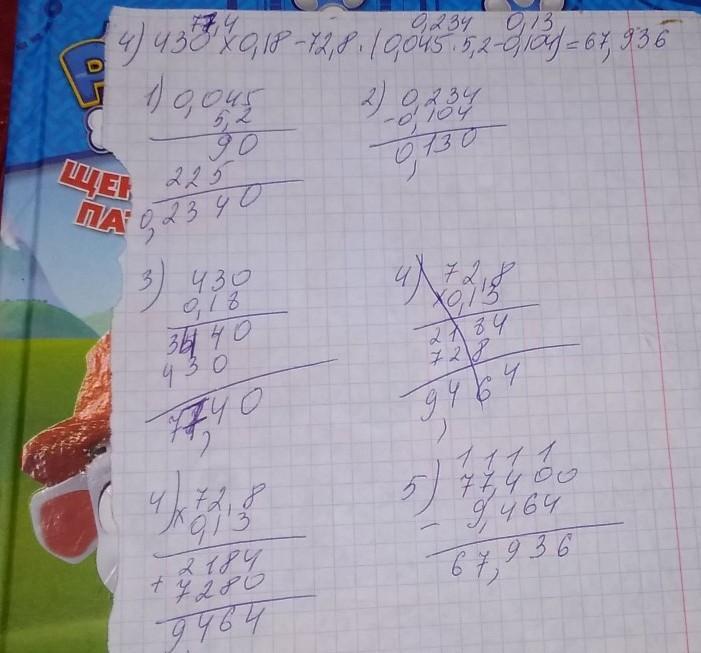 77,4 0,234 0,13
4) 430 × 0,18 - 72,8 · (0,045 · 5,2 - 0,104) = 67,936
1) 0,045
5,2
90
225
0,2340
2) 0,234
- 0,104
0,130
3) 430
0,18
3440
430
77,40
4) 72,8
× 0,13
2184
728
9,464
4) 72,8
× 0,13
2184
+ 7280
9464
5) 1 1 1 1
77,400
- 9,464
67,936
ЩЕН
ПАТ